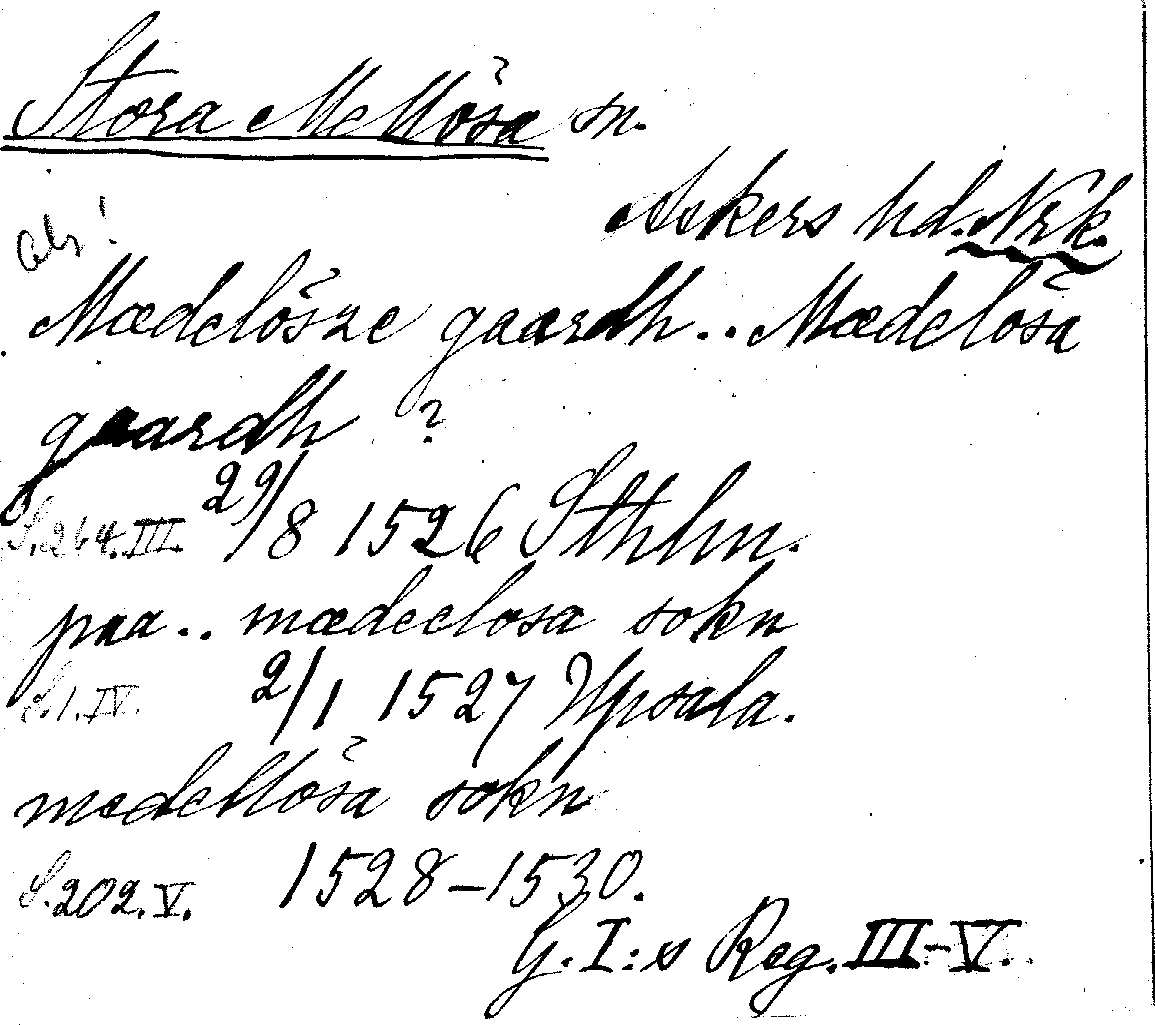 Stora Mellösa sn.
Askers hd. Nrk.
obs!
Mædelösze gaardh .. Mædelösa
gaardh ?
S. 264. III. 29/8 1526 Sthlm.
paa .. mædeelosa sokn
S. 1. IV. 2/1 1527 Upsala.
medellösa sokn
S. 202. V. 1528–1530.
G. I:s Reg. III–V.